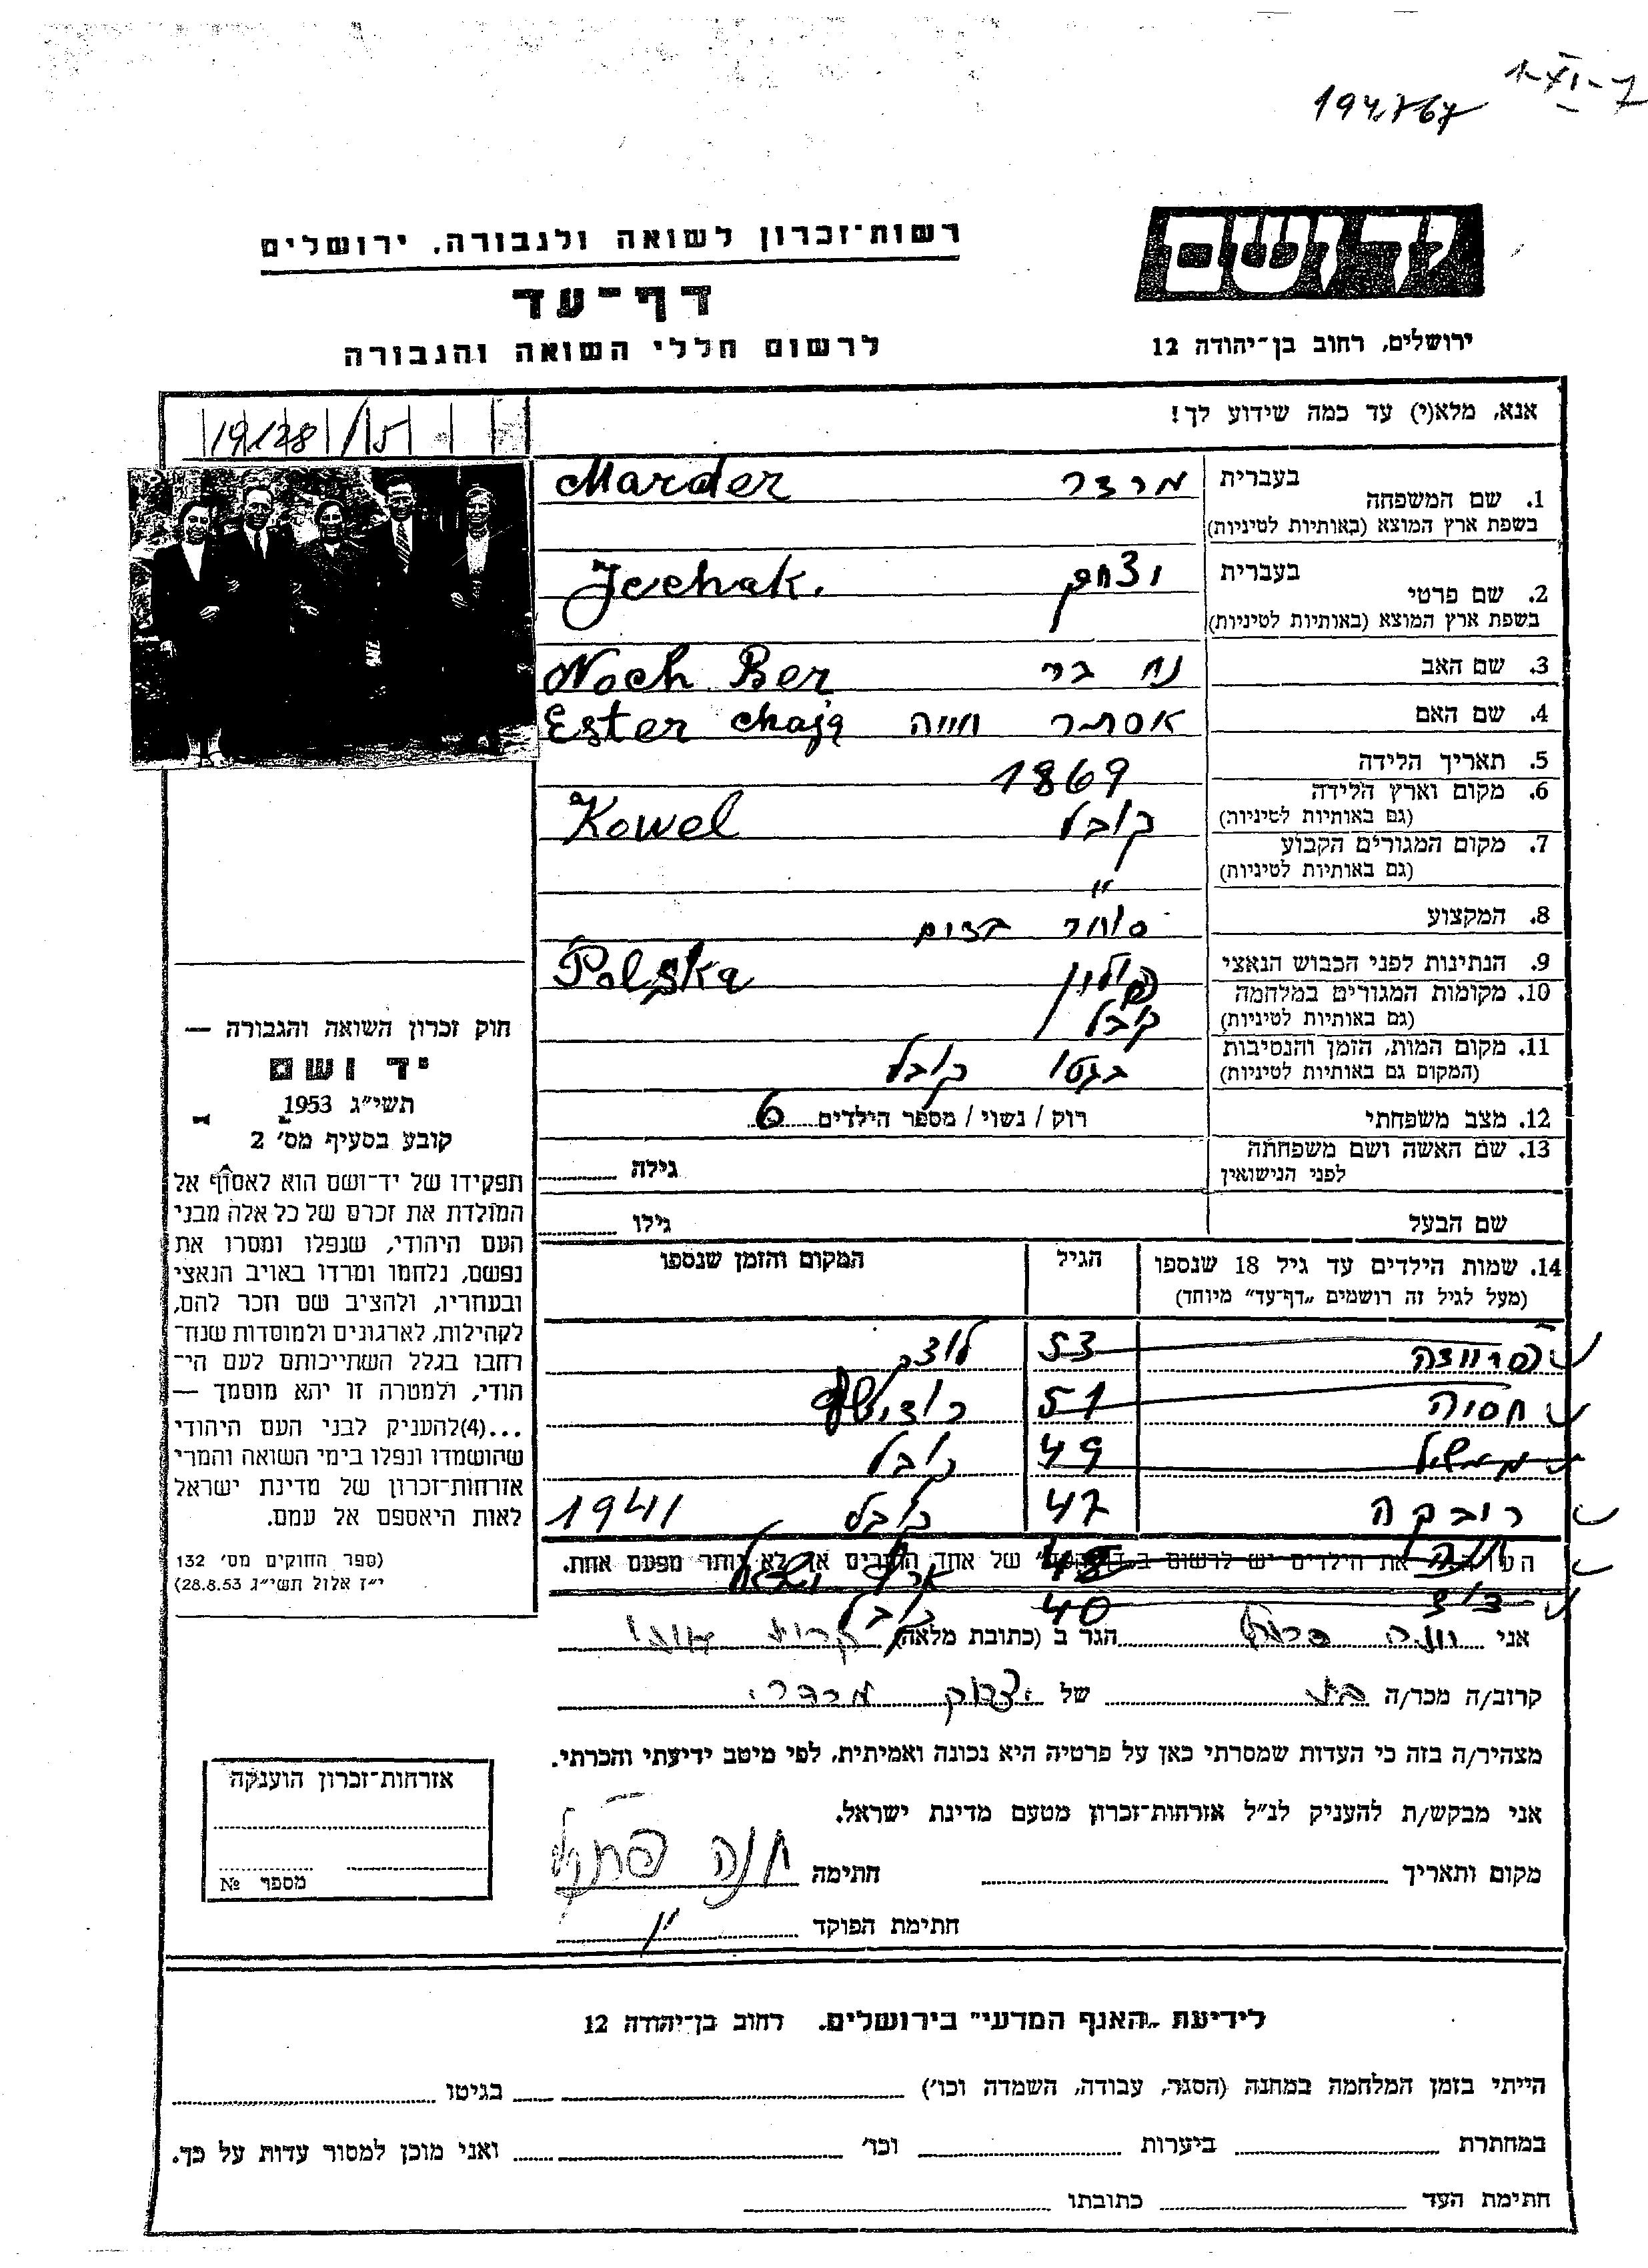 1-XI-7
194767
רשות־זכרון לשואה ולגבורה, ירושלים
דף־עד
לרשום חללי השואה והגבורה
יד ושם
ירושלים, רחוב בן־יהודה 12
אנא, מלא(י) עד כמה שידוע לך!
19128/15
1. שם המשפחה בעברית מרדר Marder
בשפת ארץ המוצא (באותיות לטיניות)
2. שם פרטי בעברית יצחק Jcchak.
בשפת ארץ המוצא (באותיות לטיניות)
3. שם האב נח בר Noch Ber
4. שם האם אסתר חייה Ester chaja
5. תאריך הלידה 1869
6. מקום וארץ הלידה קובל Kowel
(גם באותיות לטיניות)
7. מקום המגורים הקבוע "
(גם באותיות לטיניות)
8. המקצוע סוחר
9. הנתינות לפני הכבוש הנאצי פולין Polska
10. מקומות המגורים במלחמה קובל
(גם באותיות לטיניות)
11. מקום המות, הזמן והנסיבות בגטו קובל
(המקום גם באותיות לטיניות)
12. מצב משפחתי רוק / נשוי / מספר הילדים 6
13. שם האשה ושם משפחתה גילה
לפני הנישואין
שם הבעל גילו
14. שמות הילדים עד גיל 18 שנספו הגיל המקום והזמן שנספו
(מעל לגיל זה רושמים „דף־עד" מיוחד)
53 לוצק
חסיה 51
49 קובל
רובקה 47 קובל 1941
את הילדים יש לרשום של אחד ההורים אך לא יותר מפעם אחת.
40 קובל
אני חנה הגר ב (כתובת מלאה)
קרוב/ה מכר/ה בת של יצחק מרדר
מצהיר/ה בזה כי העדות שמסרתי כאן על פרטיה היא נכונה ואמיתית, לפי מיטב ידיעתי והכרתי.
אני מבקש/ת להעניק לנ"ל אזרחות־זכרון מטעם מדינת ישראל.
מקום ותאריך חתימה חנה
חתימת הפוקד
חוק זכרון השואה והגבורה —
יד ושם
תשי"ג 1953
קובע בסעיף מס׳ 2
תפקידו של יד־ושם הוא לאסוף אל
המולדת את זכרם של כל אלה מבני
העם היהודי, שנפלו ומסרו את
נפשם, נלחמו ומרדו באויב הנאצי
ובעוזריו, ולהציב שם וזכר להם,
לקהילות, לארגונים ולמוסדות שנח־
רחבו בגלל השתייכותם לעם הי־
הודי, ולמטרה זו יהא מוסמך —
...(4)להעניק לבני העם היהודי
שהושמדו ונפלו בימי השואה והמרי
אזרחות־זכרון של מדינת ישראל
לאות היאספם אל עמם.
(ספר החוקים מס׳ 132
י"ז אלול תשי"ג 28.8.53)
אזרחות־זכרון הוענקה
מספר №
לידיעת „האגף המדעי" בירושלים. רחוב בן־יהודה 12
הייתי בזמן המלחמה במחנה (הסגר, עבודה, השמדה וכו׳) בגיטו
במחתרת ביערות וכו׳ ואני מוכן למסור עדות על כך.
חתימת העד כתובתו